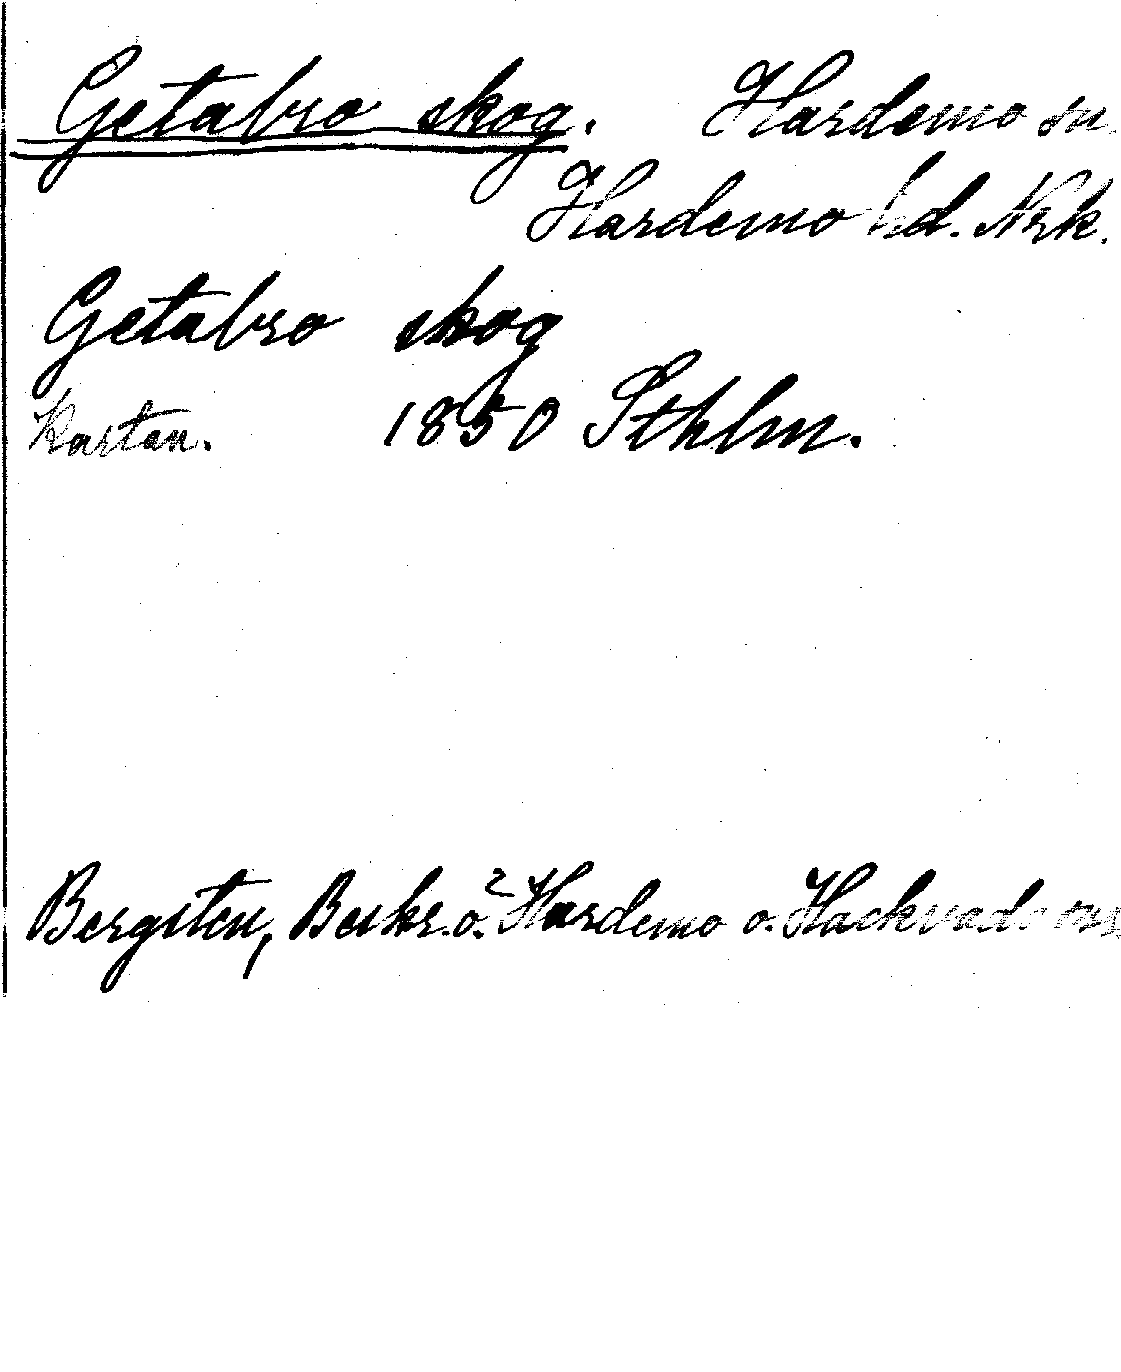 Getabro skog. Hardemo sn.
Hardemo hd. Nrk.
Getabro skog
Kartan. 1850 Sthlm.
Bergsten, Beskr. ö. Hardemo o. Hackvads sns